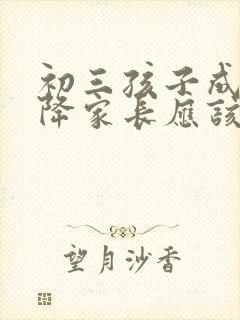 初三孩子成
降家长应该
望月沙香